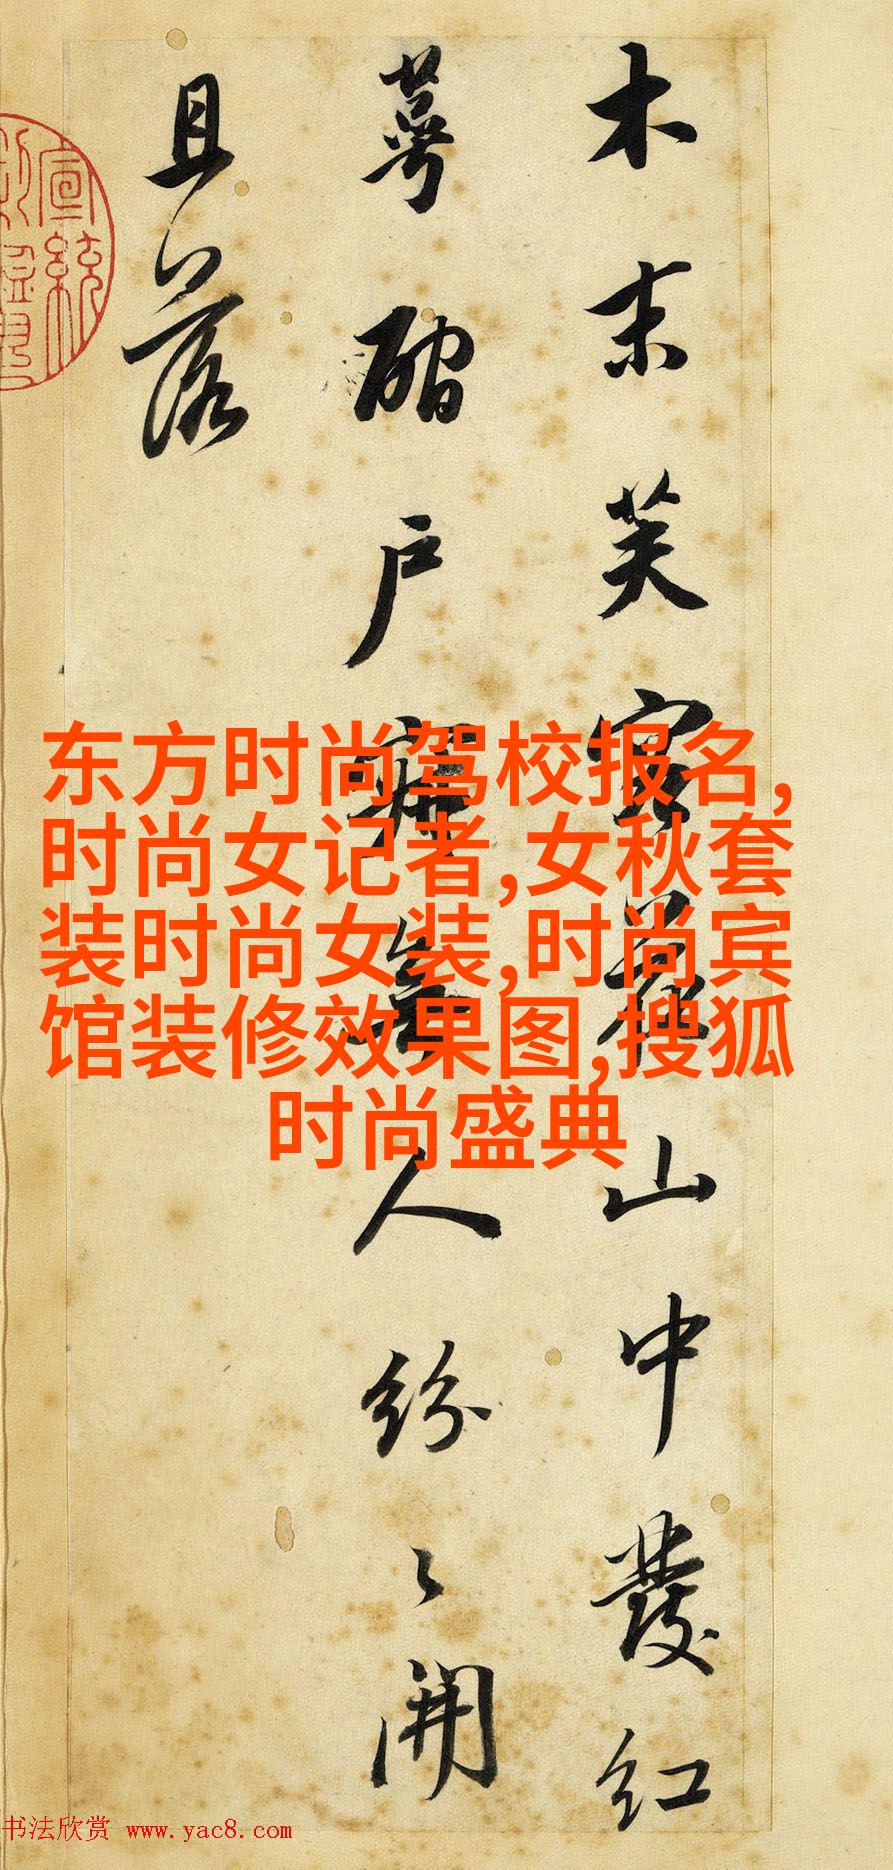 木末芙容花山中發紅
萼磵户寂無人紛〻開
且落
宣統
东方时尚驾校报名,
时尚女记者,女秋套
装时尚女装,时尚宾
馆装修效果图,搜狐
时尚盛典
书法欣赏 www.yac8.com